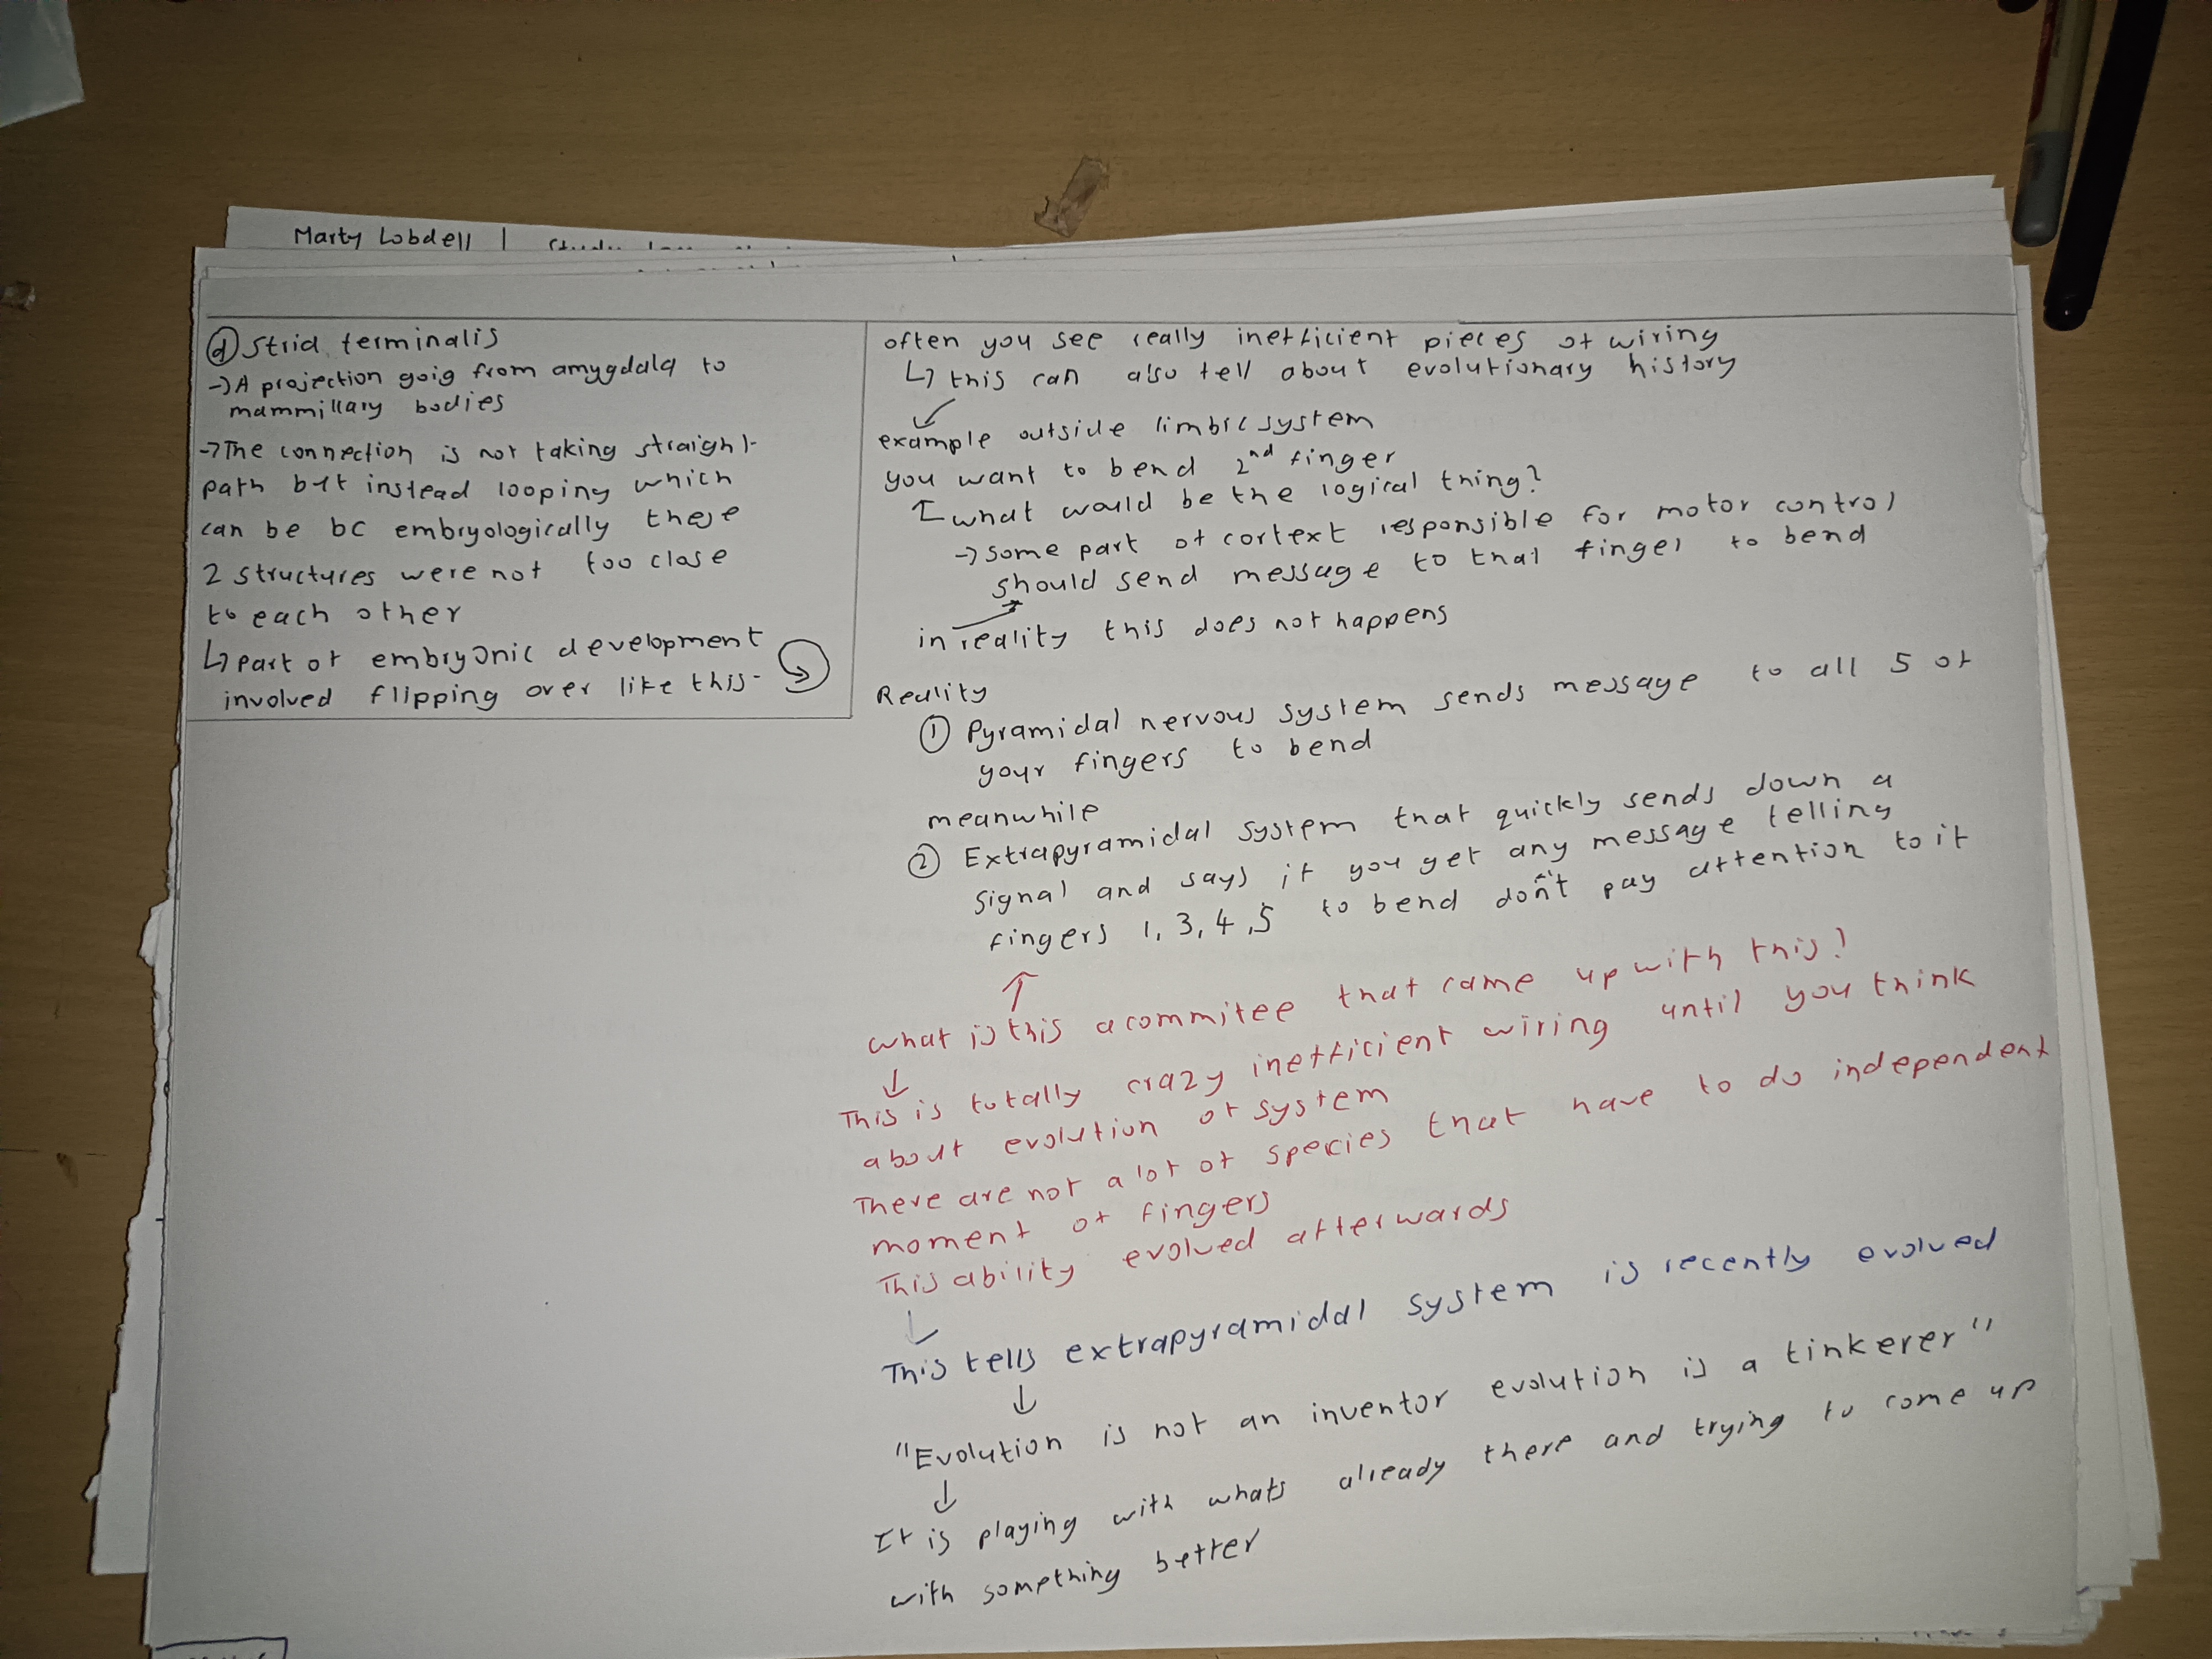 Marty Lobdell |
ⓓ Stria terminalis
→ A projection goig from amygdala to
mammillary bodies
→ The connection is not taking straight
path but instead looping which
can be bc embryologically these
2 structures were not too close
to each other
↳ part of embryonic development
involved flipping over like this-
often you see really inefficient pieces of wiring
↳ this can also tell about evolutionary history
↙
example outside limbic system
you want to bend 2nd finger
↑ what would be the logical thing?
→ some part of cortext responsible for motor control
should send message to that finger to bend
in reality this does not happens
Reality
① Pyramidal nervous system sends message to all 5 of
your fingers to bend
meanwhile
② Extrapyramidal system that quickly sends down a
signal and says if you get any message telling
fingers 1, 3, 4, 5 to bend don't pay attention to it
↑
what is this a commitee that came up with this?
↓
This is totally crazy inefficient wiring until you think
about evolution of system
There are not a lot of species that have to do independent
moment of fingers
This ability evolved afterwards
↓
This tells extrapyramidal system is recently evolved
↓
"Evolution is not an inventor evolution is a tinkerer"
↓
It is playing with whats already there and trying to come up
with something better